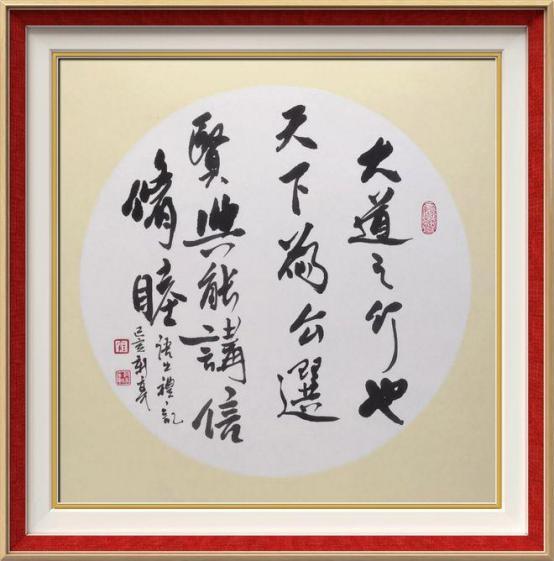 大道之行也
天下為公選
賢與能講信
脩睦
語出禮記
己亥